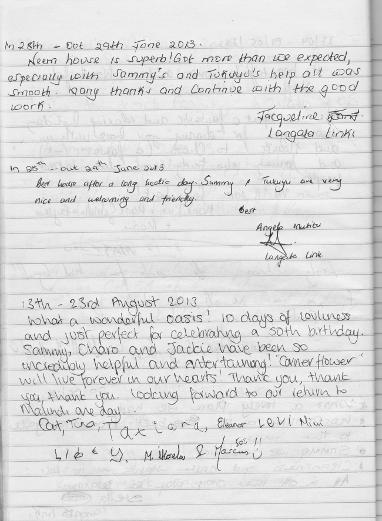 In 28th - Out 29th June 2013.
Neem house is superb! Got more than we expected,
especially with Sammy's and Tukuyu's help all was
smooth. Many thanks and continue with the good
work.
Jacqueline
Langata Links
In 28th - out 29th June 2013
Best house after a long hectic day. Sammy & Tukuyu are very
nice and welcoming and friendly.
Best
Angela
Langata Link
13th - 23rd August 2013
What a wonderful oasis! 10 days of loveliness
and just perfect for celebrating a 50th birthday.
Sammy, Charo and Jackie have been so
incredibly helpful and entertaining! 'Corner flower'
will live forever in our hearts. Thank you, thank
you, thank you. Looking forward to our return to
Malindi one day...
Cat, Tina, Eleanor LEVI Mimi
M. & Marcus